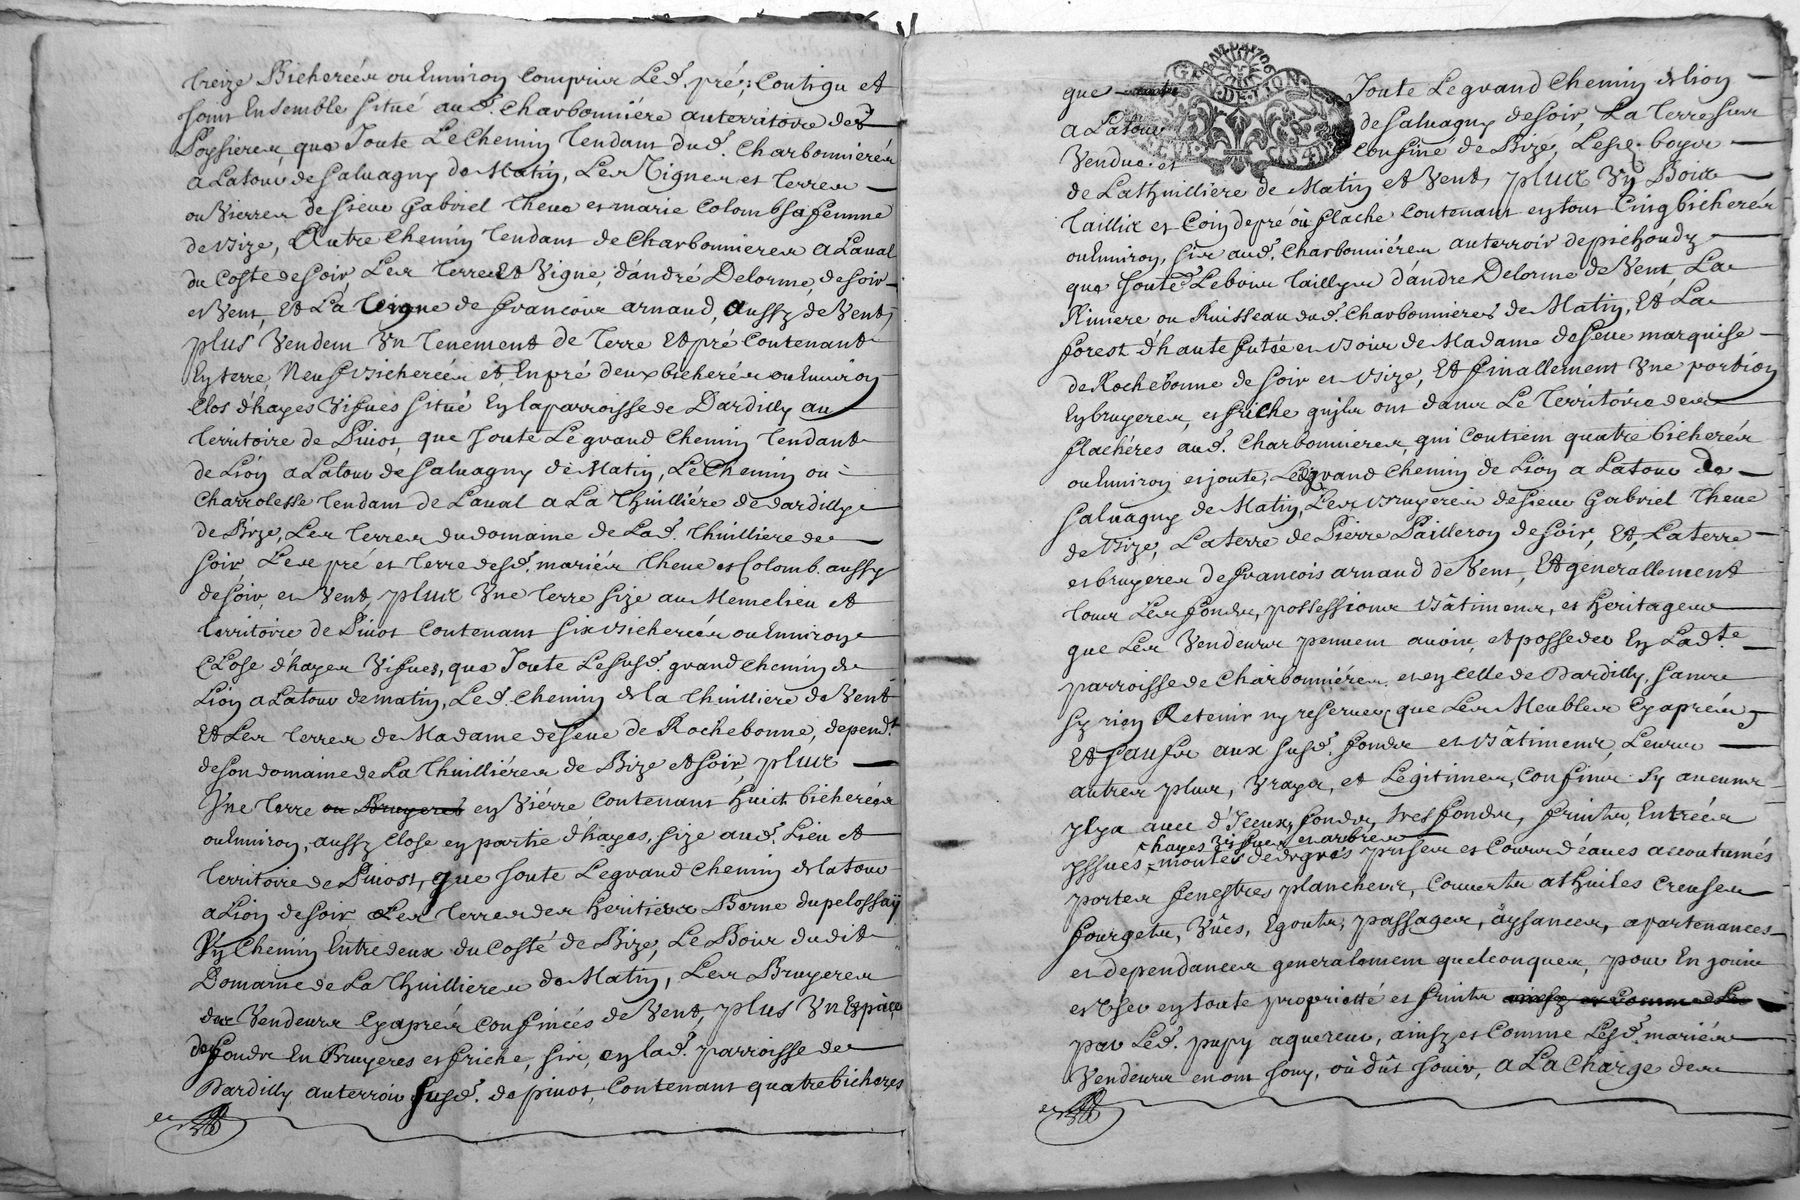 treize Bicherées ou Environ comprins Led. pré, contigu et
sont Ensemble situé aud. Charbonniére auterritoire des
que Joute Le Chemin tendant dud. Charbonnieres
A Latour de Saluagny de Matin, Les Vignes et terres
ou Vierres de sieur Gabriel theue et marie Colomb sa femme
de Bize, Autre Chemin tendant de Charbonnieres A Laual
du Coste de soir, Les terres Et Vigne, d'andré Delorme, de soir
et Vent, Et La Vigne de francois arnaud, aussy de Vent,
plus Vendent Vn tenement de terre Et pré Contenant
En terre, Neuf Bicherées et En pré deux bicherées ou Enuiron
Clos d'hayes Vifues situé En laparroisse de Dardilly au
territoire de Piuot, que Joute Le grand Chemin tendant
de Lion a Latour de Saluagny de Matin, Le Chemin ou
Charrolesse tendant de Laual a La Thuilliére de dardilly
de Bize, Les terres du domaine de Lad. thuilliere de
soir Les pré et terre desd. mariés theue et Colomb aussy
de soir, et Vent, plus Vne terre size au Meme lieu et
territoire de Piuot Contenant six Bicherées ou Enuiron
Close d'hayes Vifues, que Joute Le susd. grand Chemin de
Lion a Latour de matin, Led. Chemin de la thuilliere de Vent
Et Les terres de Madame de seue de Rochebonne, depend.t
de son domaine de La Thuilliéres de Bize et soir, plus
Vne terre ou Bruyeres en Viérre Contenant huit bicherées
ou Enuiron, aussy Close en partie d'hayes, size aud. Lieu et
territoire de Piuost, que Joute Le grand Chemin de latour
a Lion de soir Les terres des heritiers Berne du pelossay
Vn Chemin Entredeux du Costé de Bize, Le Bois dudit
Domaine de La Thuilliere de Matin, Les Bruyeres
des Vendeurs Cyaprés Confinées de Vent, plus Vn Espace
de fonds En Bruyeres et friche, sis, en lad. parroisse de
Dardilly auterroir susd. de piuot, Contenant quatre bicheres
que Joute Le grand Chemin de lion
A Latour de Saluagny de soir, La terre sus
Vendue et Confiné de Bize, Le sr. boyer
de La thuilliere de Matin et Vent, plus Vn Bois
taillix et Coin de pré ou flache Contenant en tout Cinq bicherées
ou Enuiron, sis aud. Charbonniéres auterroir de
que Joute Le bois taillys d'andre Delorme de Vent, La
Riuiere ou Ruisseau dud. Charbonnieres de Matin, Et La
forest d'haute futée et Bois de Madame de seue marquise
de Rochebonne de soir et Bize, Et finallement Vne portion
En bruyeres, et friche qu'ils ont dans Le territoire des
flachéres aud. Charbonnieres, qui Contient quatre bicherées
ou Enuiron et joute, Le grand Chemin de Lion a Latour de
Saluagny de Matin, Les Bruyeres de sieur Gabriel theue
de Bize, La terre de Pierre Pailleron de soir, Et, La terre
et bruyeres de francois arnaud de Vent, Et generallement
tous Les fonds, possessions Bâtiments, et heritages
que Les Vendeurs peuuent auoir, et posseder En Lad.te
parroisse de Charbonniéres, et en Celle de Dardilly, sans
sy rien Retenir ny reseruer que Les Meubles Cyaprés
Et sauf aux susd. fonds et Bâtiments, Leurs
autres plus, Vrays, et Legitimes, Confins sy aucuns
yl y a auec d'Iceux fonds, tresfonds, fruits, Entrées
hayes Vifues et arbres
yssues, montés degrés puises et Cours d'éaues accoutumés
portes fenestres planchers, Couuerts athuiles Creuses
fourgets, Vûes, Egouts, passages, aysances, apartenances
et dependances generalement quelconques, pour En jouir
et Vser en toute proprietté et fruits
par Led. pupy aquereur, ainsy et Comme Lesd. mariés
Vendeurs en ont jouy, ou dût jouir, A La Charge des